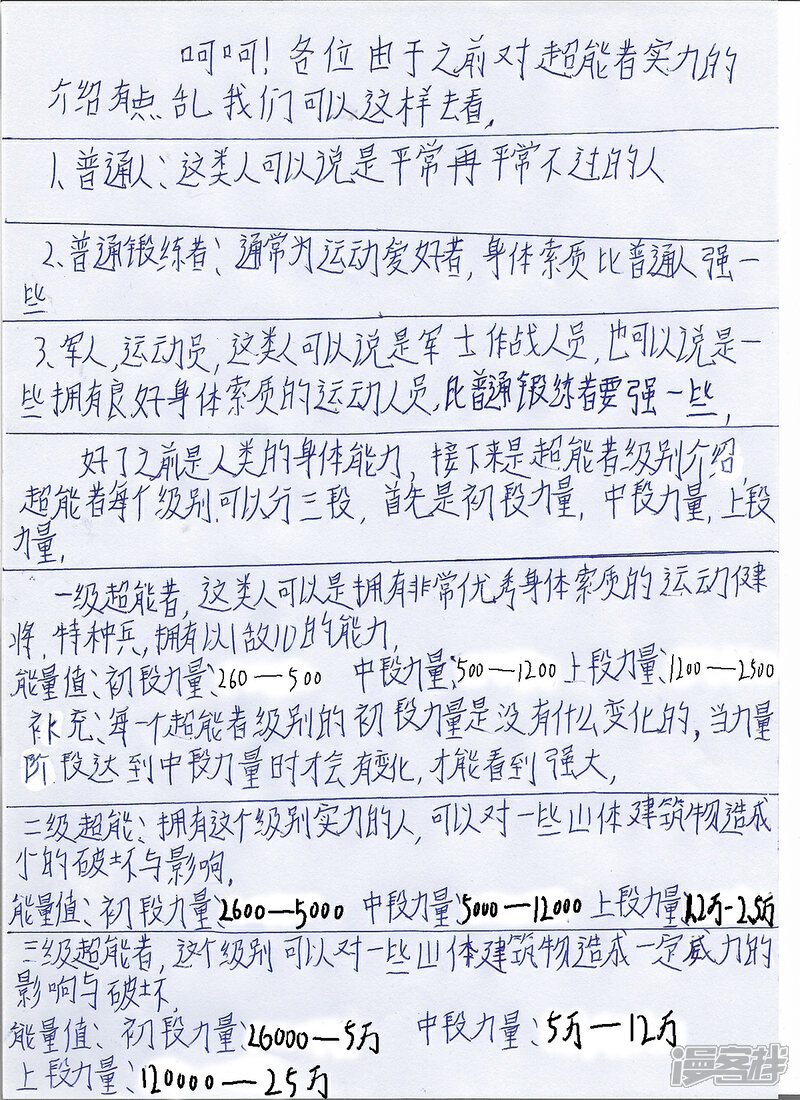 呵呵！各位由于之前对超能者实力的
介绍有点乱我们可以这样去看,
1、普通人：这类人可以说是平常再平常不过的人
2、普通锻练者：通常为运动爱好者,身体索质比普通人强一
些
3、军人,运动员,这类人可以说是军士作战人员,也可以说是一
些拥有良好身体索质的运动人员,比普通锻练者要强一些,
好了之前是人类的身体能力,接下来是超能者级别介绍,
超能者每个级别可以分三段,首先是初段力量,中段力量,上段
力量,
一级超能者,这类人可以是拥有非常优秀身体索质的运动健
将,特种兵,拥有以1敌10的能力,
能量值：初段力量：260—500 中段力量：500—1200 上段力量：1200—2500
补充：每一个超能者级别的初段力量是没有什么变化的,当力量
阶段达到中段力量时才会有变化,才能看到强大,
二级超能：拥有这个级别实力的人,可以对一些山体建筑物造成
小的破坏与影响,
能量值：初段力量：2600—5000 中段力量：5000—12000 上段力量：1.2万-2.5万
三级超能者,这个级别可以对一些山体建筑物造成一定威力的
影响与破坏,
能量值：初段力量：26000—5万 中段力量：5万—12万
上段力量：120000—25万
漫客栈